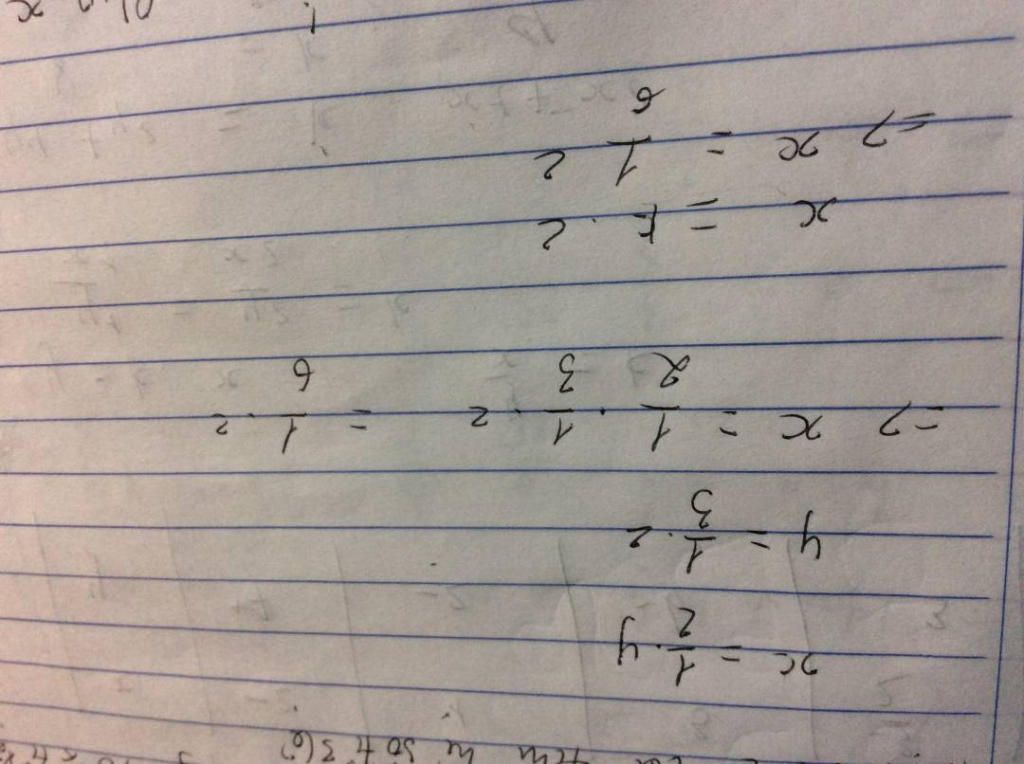 x = 1/2 · y
y = 1/3 · z
=> x = 1/2 · 1/3 · z = 1/6 · z
x = k · z
=> x = 1/6 z